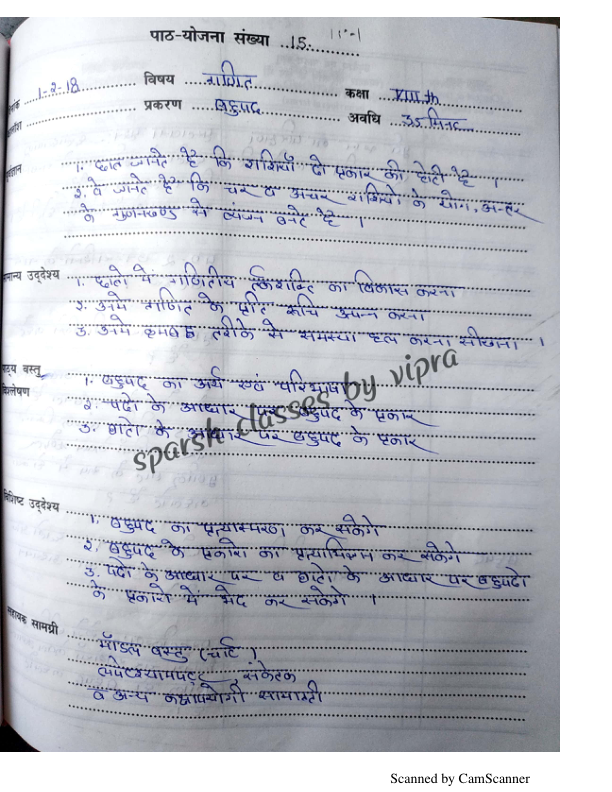 पाठ-योजना संख्या 15.
1-2-18 विषय गणित कक्षा VIII th
प्रकरण बहुपद अवधि 35 मिनट
1. छात्र जानते है कि राशियाँ दो प्रकार की होती है ।
2. वे जानते है कि चर व अचर राशियो के योग, अन्तर
के गुणनखण्ड से व्यंजन बनते है ।
मान्य उद्देश्य 1. छात्रो मे गणितीय तर्कशक्ति का विकास करना
2. उनमे गणित के प्रति रूचि उत्पन्न करना
3. उनमे क्रमबद्ध तरीके से समस्या हल करना सीखाना ।
ठ्य वस्तु 1. बहुपद का अर्थ एवं परिभाषा
श्लेषण 2. पदो के आधार पर बहुपद के प्रकार
3. घातो के आधार पर बहुपद के प्रकार
sparsh classes by vipra
विशिष्ट उद्देश्य 1. बहुपद का प्रत्यास्मरण कर सकेगे
2. बहुपद के प्रकारो का प्रत्याभिज्ञान कर सकेगे
3. पदो के आधार पर व घातो के आधार पर बहुपदो
के प्रकारो मे भेद कर सकेगे ।
सहायक सामग्री मॉडल वस्तु (चार्ट)
लपेटश्यामपट्ट, संकेतक
व अन्य कक्षोपयोगी सामाग्री
Scanned by CamScanner